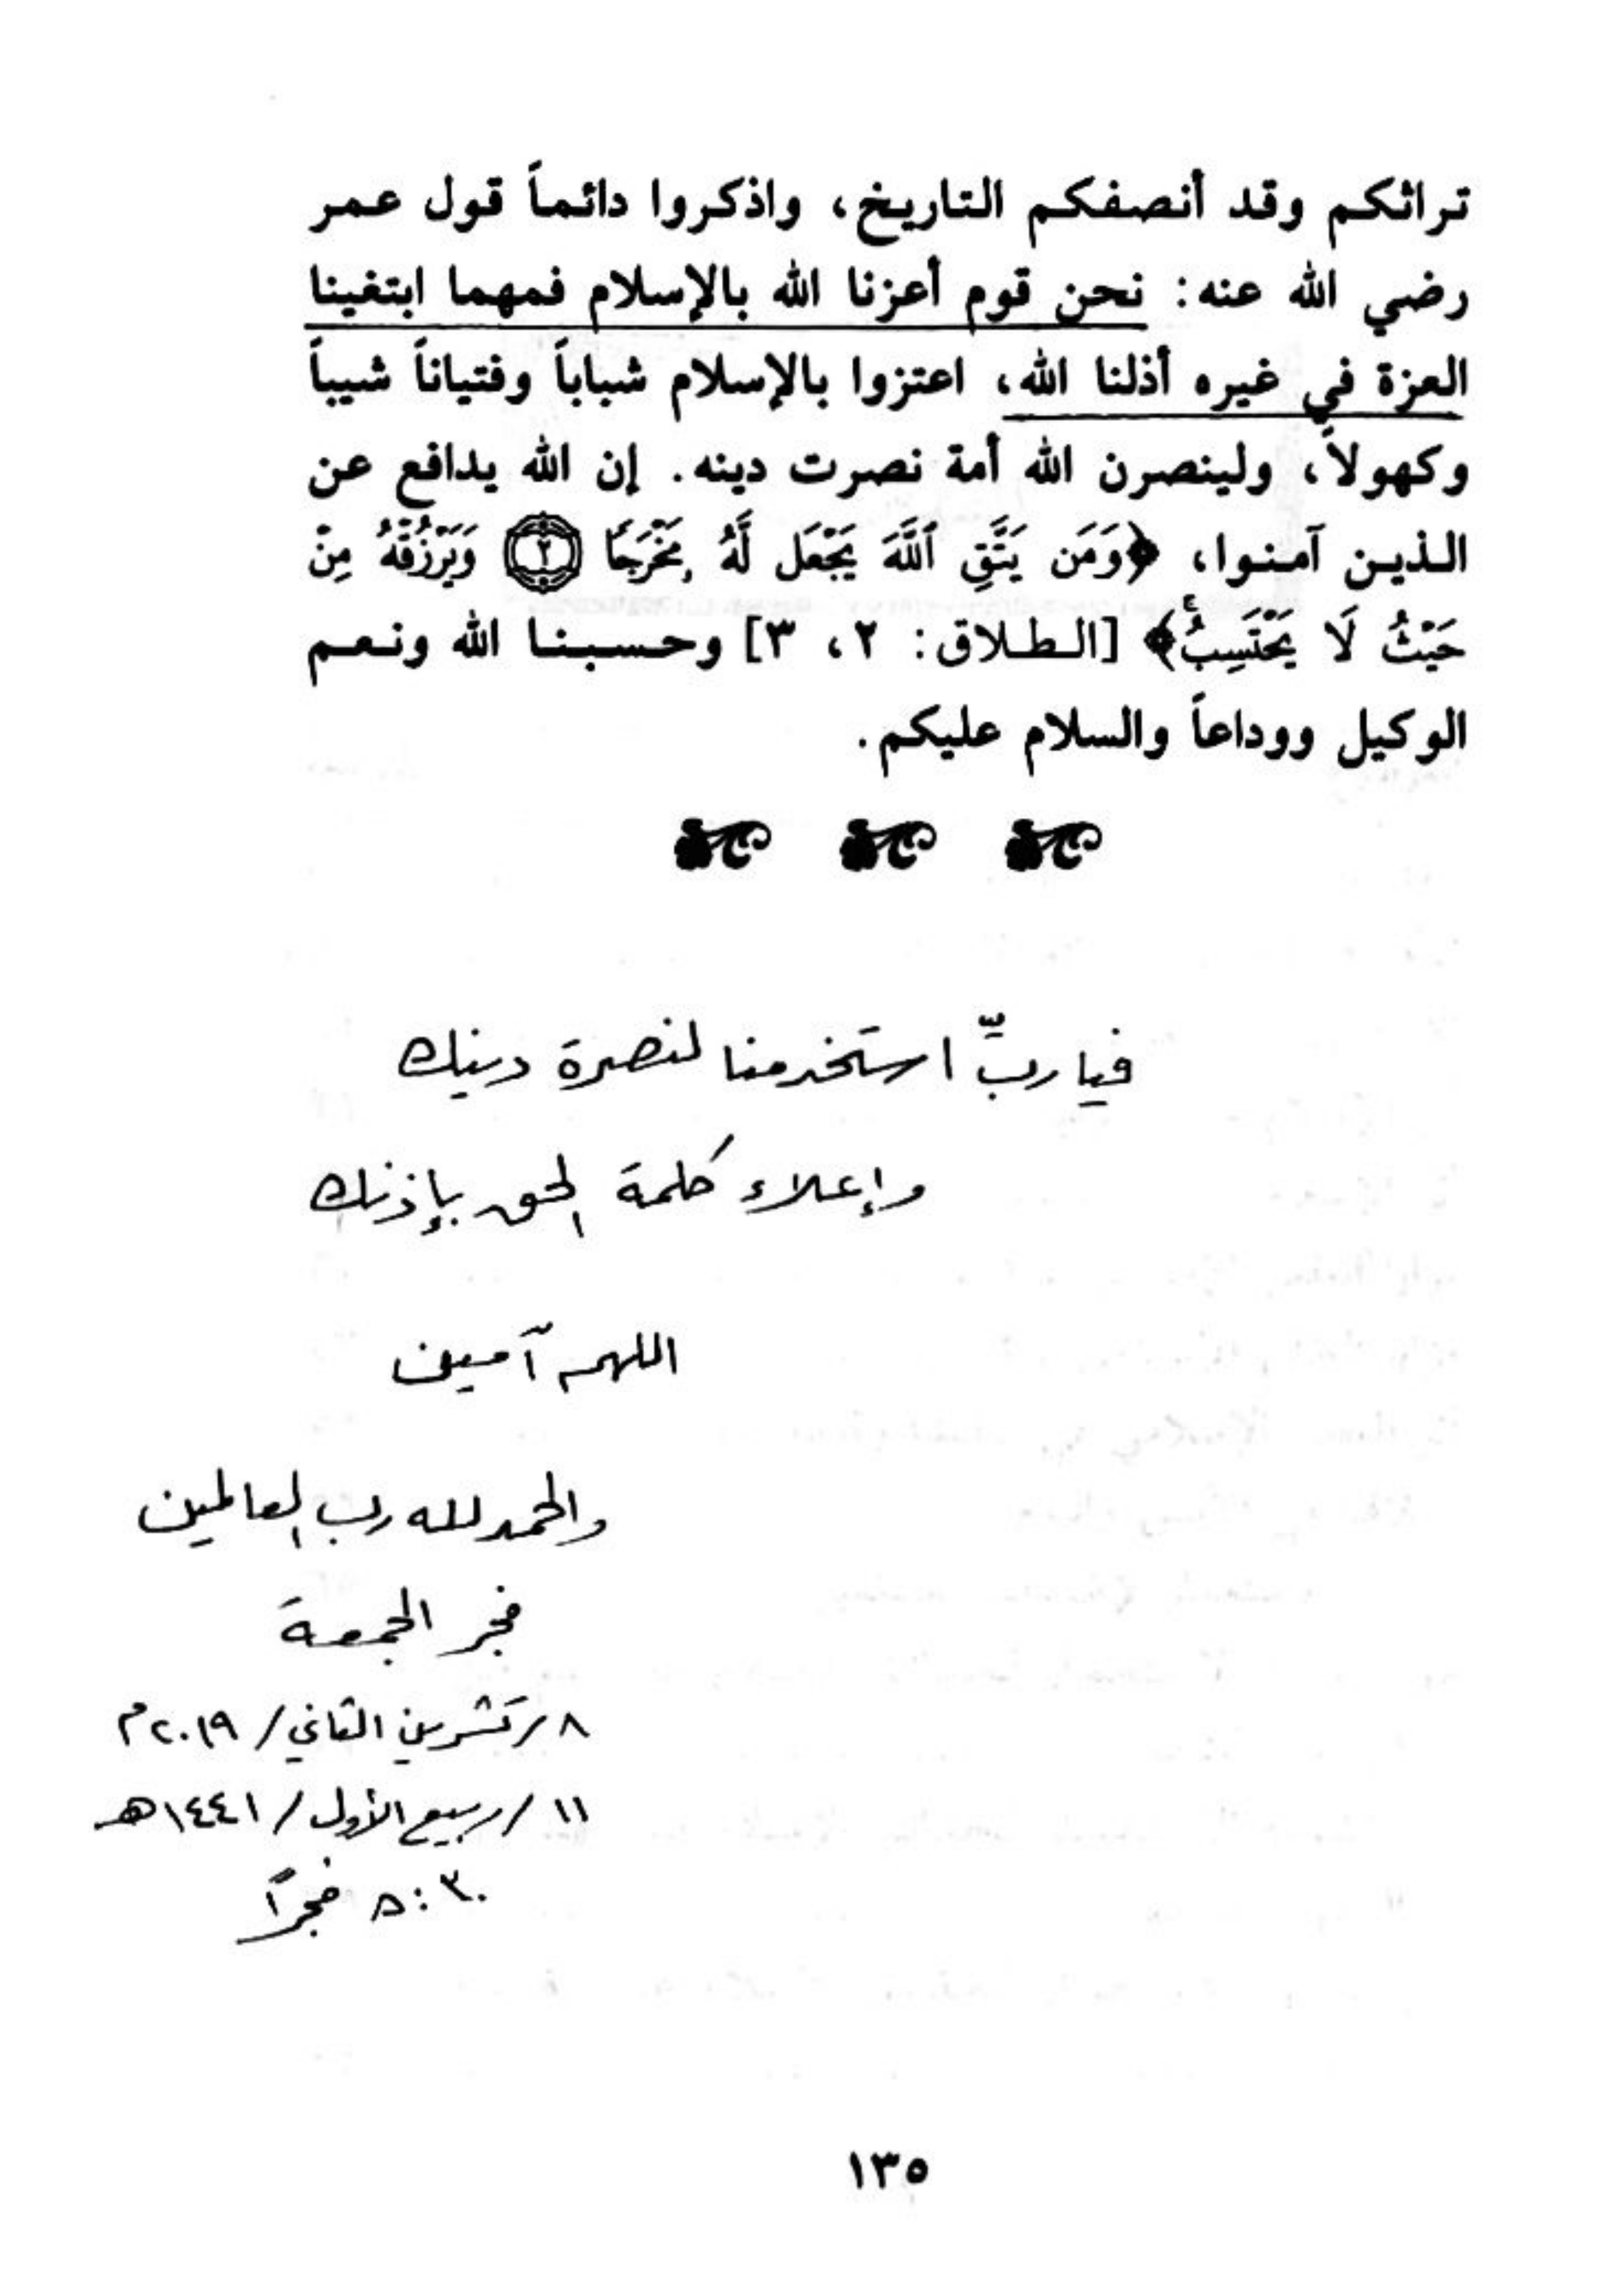 تراثكم وقد أنصفكم التاريخ، واذكروا دائماً قول عمر
رضي الله عنه: نحن قوم أعزنا الله بالإسلام فمهما ابتغينا
العزة في غيره أذلنا الله، اعتزوا بالإسلام شباباً وفتياناً شيباً
وكهولاً، ولينصرن الله أمة نصرت دينه. إن الله يدافع عن
الذين آمنوا، ﴿وَمَن يَتَّقِ ٱللَّهَ يَجْعَل لَّهُۥ مَخْرَجًا ٢ وَيَرْزُقْهُ مِنْ
حَيْثُ لَا يَحْتَسِبُۚ﴾ [الطلاق: ٢، ٣] وحسبنا الله ونعم
الوكيل ووداعاً والسلام عليكم.
فيا ربِّ استخدمنا لنصرة دينك
وإعلاء كلمة الحق بإذنك
اللهم آمين
والحمد لله رب العالمين
فجر الجمعة
٨/تشرين الثاني/٢٠١٩م
١١/ربيع الأول/١٤٤١هـ
٥:٣٠ فجراً
١٣٥